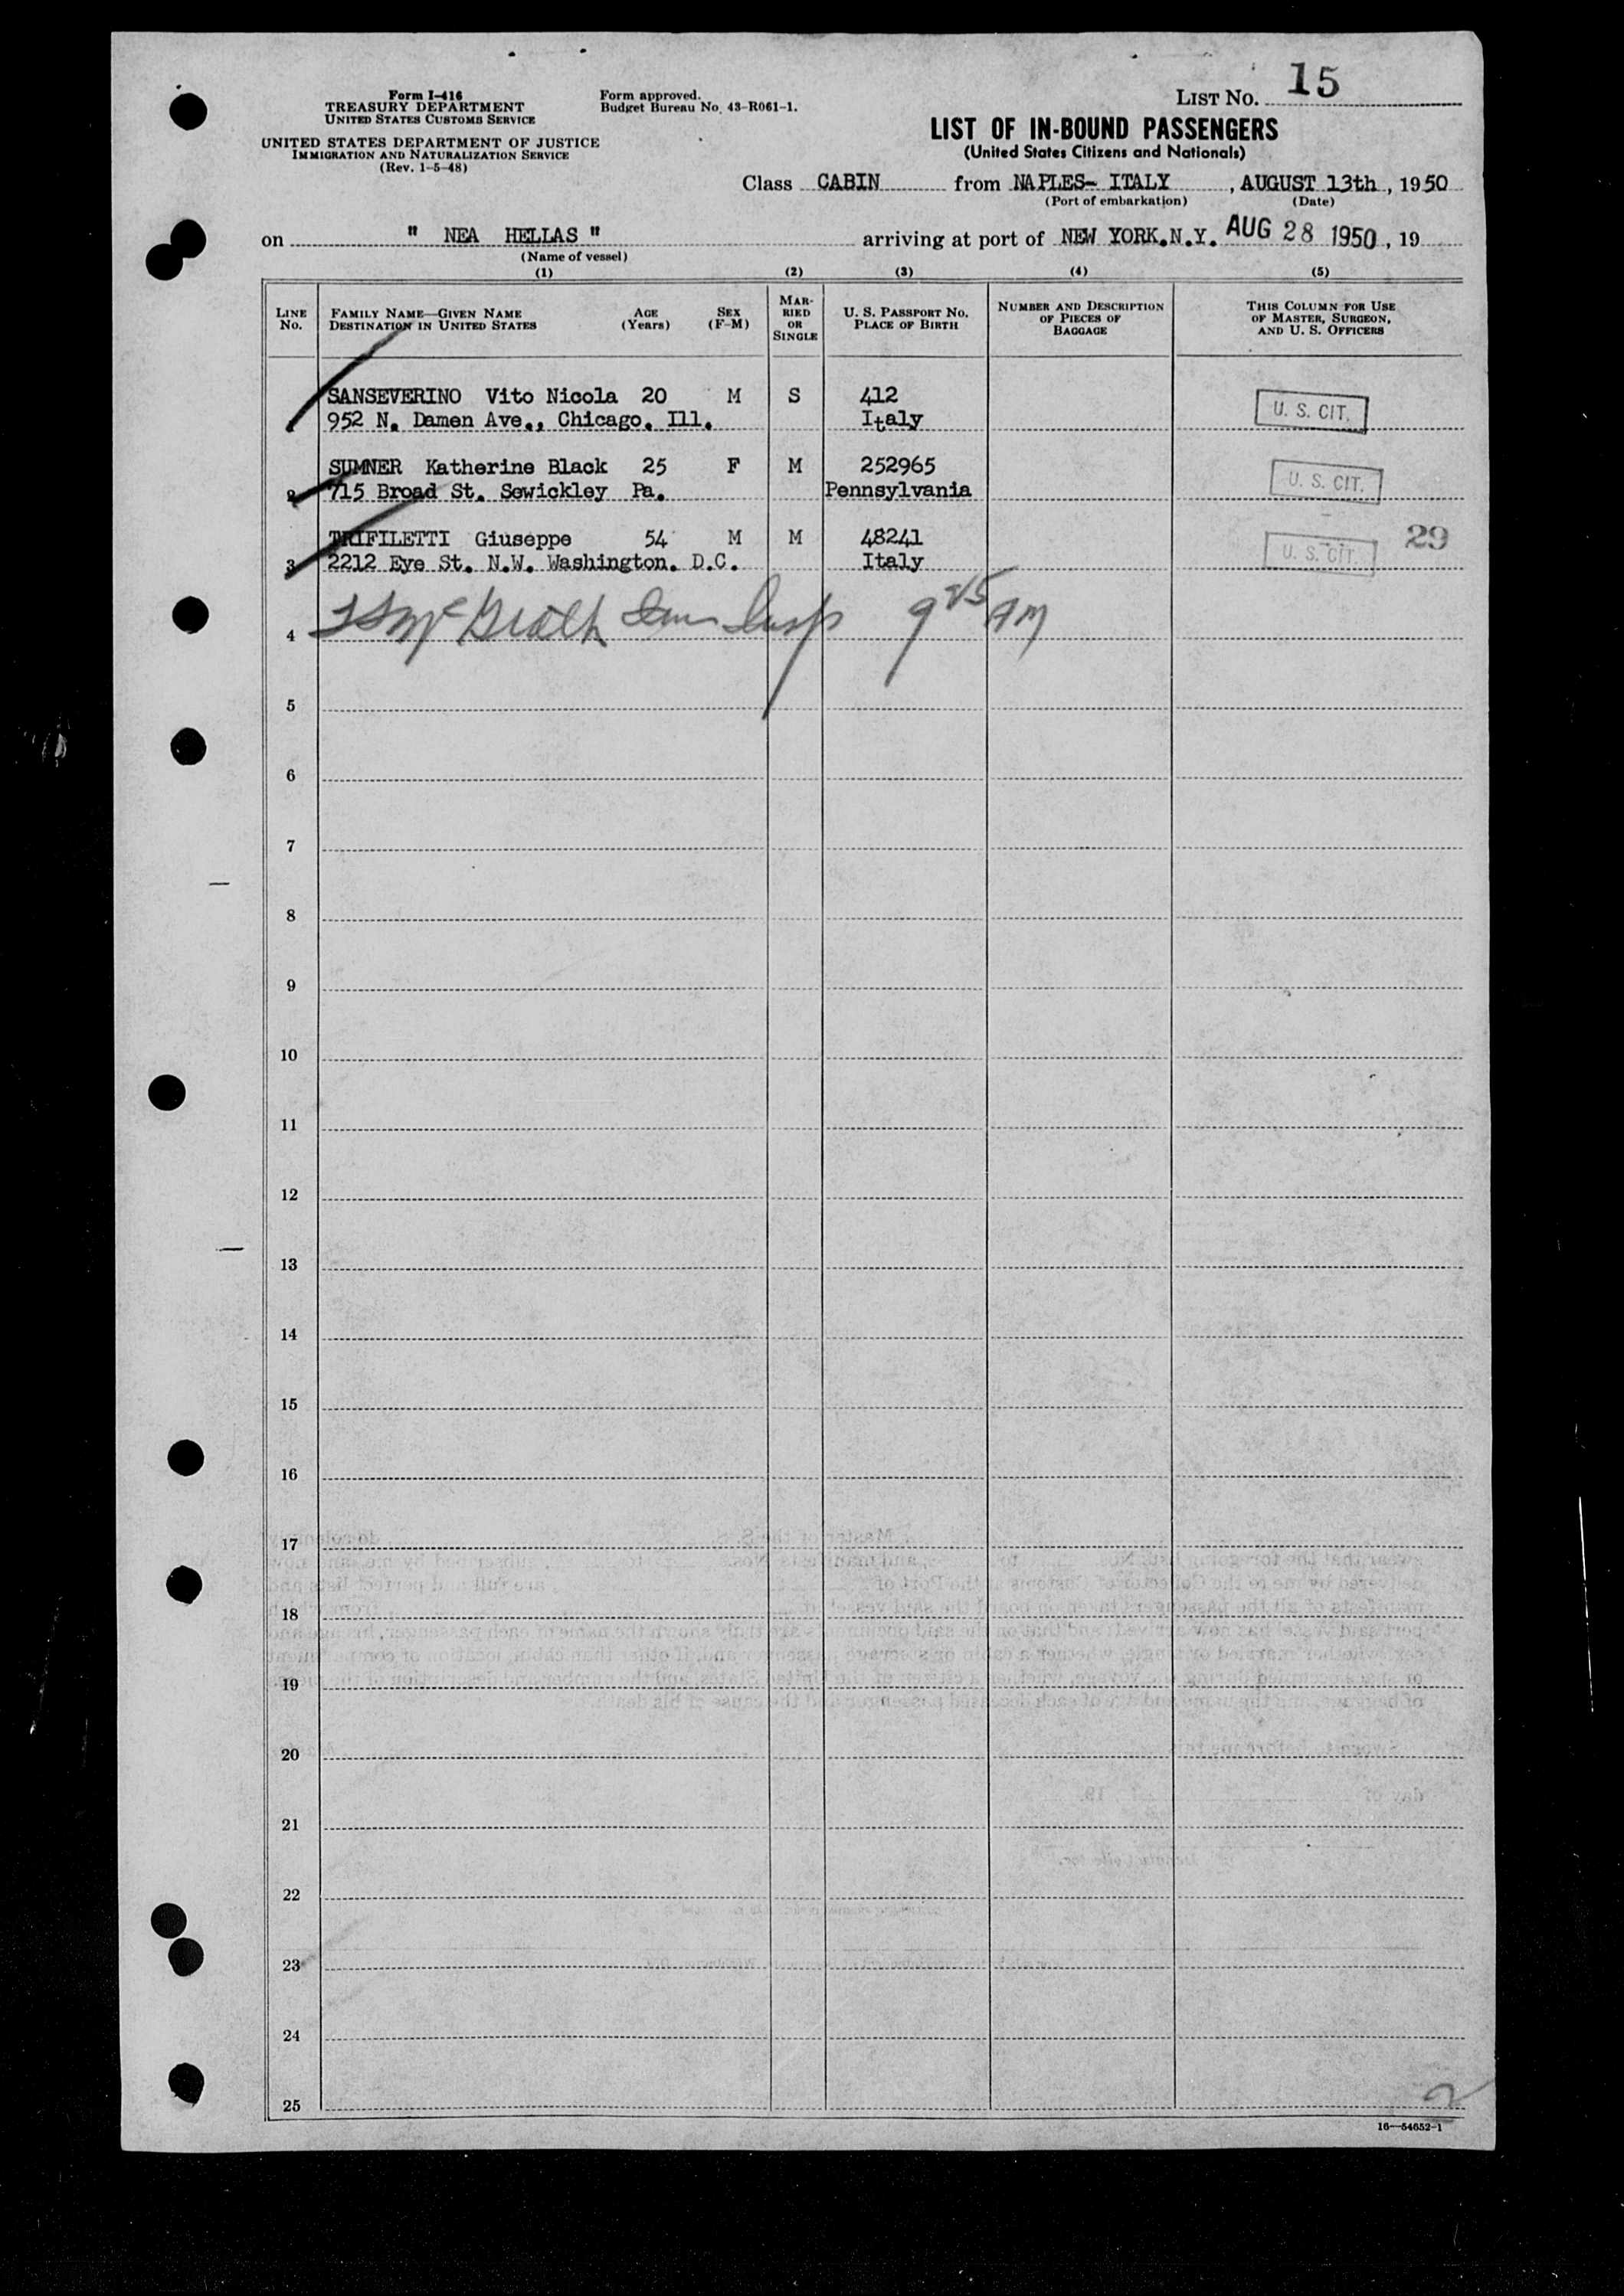 Form I-416
TREASURY DEPARTMENT
UNITED STATES CUSTOMS SERVICE
UNITED STATES DEPARTMENT OF JUSTICE
IMMIGRATION AND NATURALIZATION SERVICE
(Rev. 1-5-48)
Form approved.
Budget Bureau No. 43-R061-1.
LIST NO. 15
LIST OF IN-BOUND PASSENGERS
(United States Citizens and Nationals)
Class CABIN from NAPLES- ITALY , AUGUST 13th , 1950
(Port of embarkation) (Date)
on " NEA HELLAS " arriving at port of NEW YORK.N.Y. AUG 28 1950 , 19
(Name of vessel)
(1) (2) (3) (4) (5)
LINE NO.
FAMILY NAME—GIVEN NAME DESTINATION IN UNITED STATES
AGE (Years)
SEX (F-M)
MARRIED OR SINGLE
U. S. PASSPORT NO. PLACE OF BIRTH
NUMBER AND DESCRIPTION OF PIECES OF BAGGAGE
THIS COLUMN FOR USE OF MASTER, SURGEON, AND U. S. OFFICERS
SANSEVERINO Vito Nicola 20 M S 412
952 N. Damen Ave., Chicago. Ill. Italy U. S. CIT.
SUMNER Katherine Black 25 F M 252965
2 715 Broad St. Sewickley Pa. Pennsylvania U. S. CIT.
TRIFILETTI Giuseppe 54 M M 48241 29
3 2212 Eye St. N.W. Washington. D.C. Italy U. S. CIT.
4 McGrath Imm Insp 9 25 AM
5
6
7
8
9
10
11
12
13
14
15
16
17
18
19
20
21
22
23
24
25
2
16—54652-1